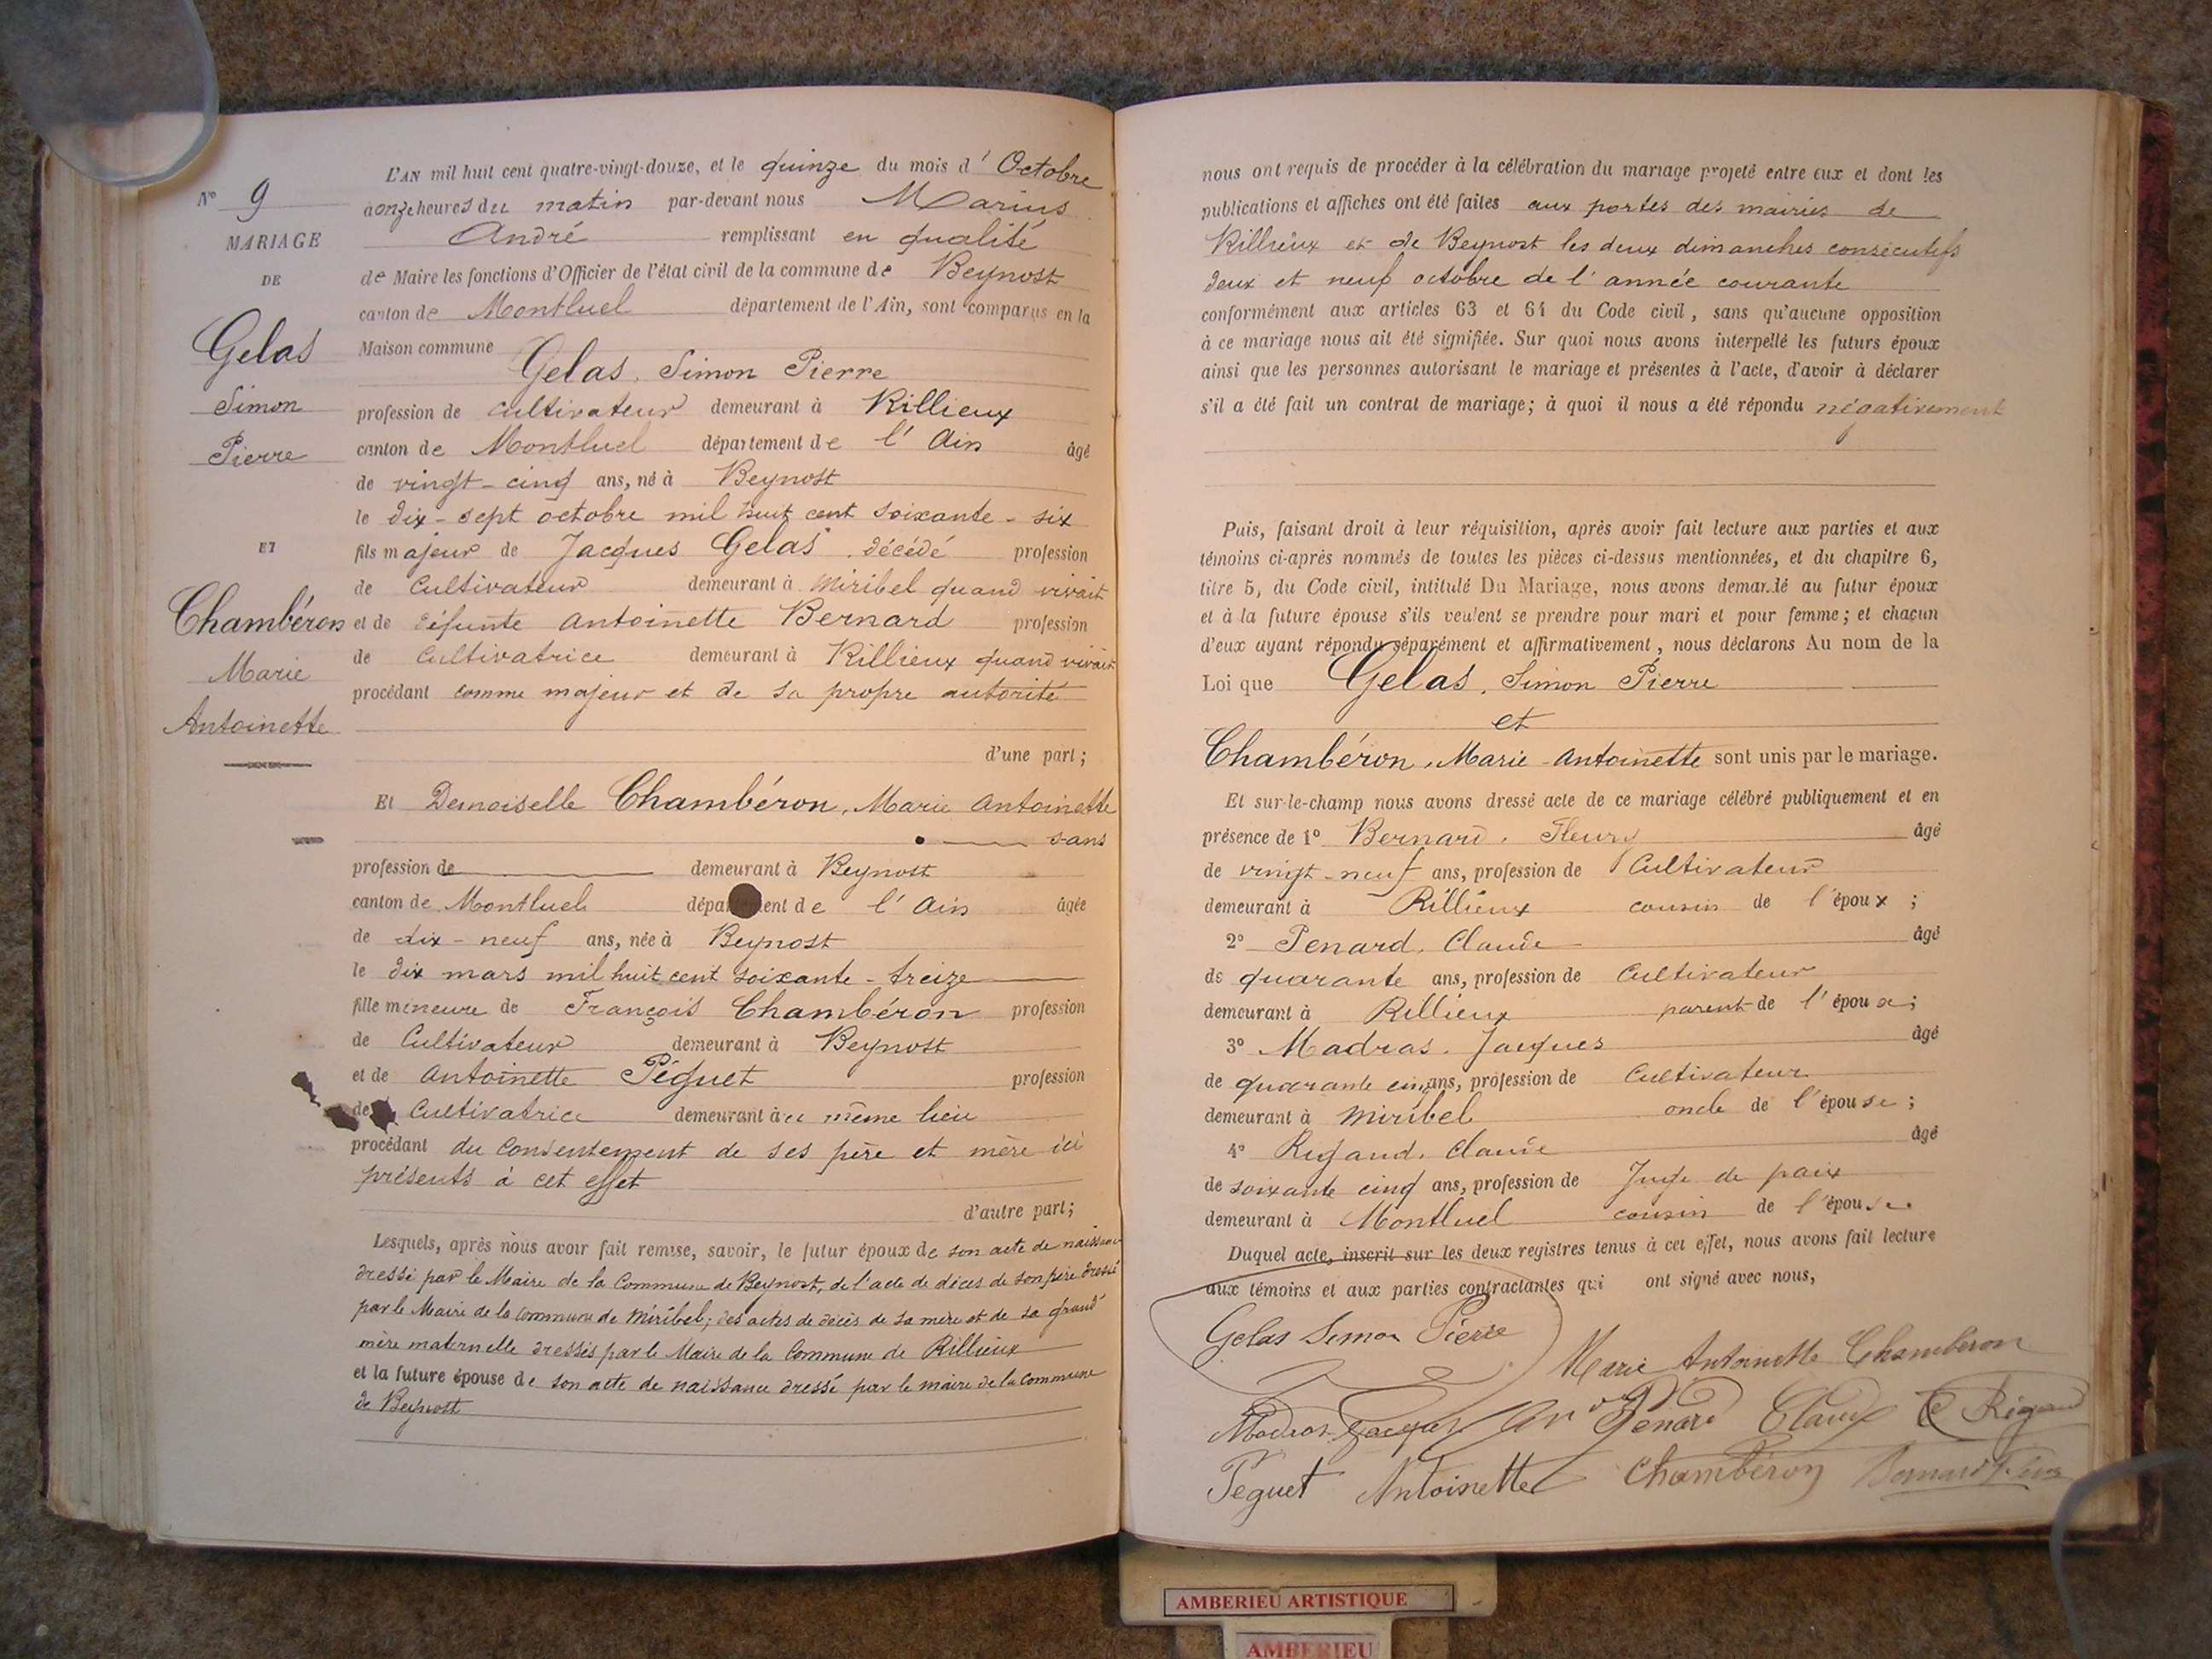 N° 9
MARIAGE
DE
Gelas
Simon
Pierre
ET
Chambéron
Marie
Antoinette
L'AN mil huit cent quatre-vingt-douze, et le quinze du mois d' Octobre
à onze heures du matin par-devant nous Marius
André remplissant en qualité
de Maire les fonctions d'Officier de l'état civil de la commune de Beynost
canton de Montluel département de l'Ain, sont comparus en la
Maison commune
Gelas, Simon Pierre
profession de cultivateur demeurant à Rillieux
canton de Montluel département de l' Ain âgé
de vingt-cinq ans, né à Beynost
le dix-sept octobre mil huit cent soixante-six
fils majeur de Jacques Gelas, décédé profession
de Cultivateur demeurant à Miribel quand vivait
et de défunte Antoinette Bernard profession
de Cultivatrice demeurant à Rillieux quand vivait
procédant comme majeur et de sa propre autorité
d'une part;
Et Demoiselle Chambéron, Marie Antoinette
sans
profession de demeurant à Beynost
canton de Montluel département de l' Ain âgée
de dix-neuf ans, née à Beynost
le dix mars mil huit cent soixante-treize
fille mineure de François Chambéron profession
de Cultivateur demeurant à Beynost
et de Antoinette Péguet profession
de Cultivatrice demeurant au même lieu
procédant du consentement de ses père et mère ici
présents à cet effet
d'autre part;
Lesquels, après nous avoir fait remise, savoir, le futur époux de son acte de naissance
dressé par le Maire de la Commune de Beynost, de l'acte de décès de son père dressé
par le Maire de la Commune de Miribel; des actes de décès de sa mère et de sa grand'
mère maternelle dressés par le Maire de la Commune de Rillieux
et la future épouse de son acte de naissance dressé par le maire de la commune
de Beynost
nous ont requis de procéder à la célébration du mariage projeté entre eux et dont les
publications et affiches ont été faites aux portes des mairies de
Rillieux et de Beynost les deux dimanches consécutifs
deux et neuf octobre de l'année courante
conformément aux articles 63 et 64 du Code civil, sans qu'aucune opposition
à ce mariage nous ait été signifiée. Sur quoi nous avons interpellé les futurs époux
ainsi que les personnes autorisant le mariage et présentes à l'acte, d'avoir à déclarer
s'il a été fait un contrat de mariage; à quoi il nous a été répondu négativement
Puis, faisant droit à leur réquisition, après avoir fait lecture aux parties et aux
témoins ci-après nommés de toutes les pièces ci-dessus mentionnées, et du chapitre 6,
titre 5, du Code civil, intitulé Du Mariage, nous avons demandé au futur époux
et à la future épouse s'ils veulent se prendre pour mari et pour femme; et chacun
d'eux ayant répondu séparément et affirmativement, nous déclarons Au nom de la
Loi que Gelas, Simon Pierre
et
Chambéron, Marie-Antoinette sont unis par le mariage.
Et sur-le-champ nous avons dressé acte de ce mariage célébré publiquement et en
présence de 1° Bernard, Fleury âgé
de vingt-neuf ans, profession de Cultivateur
demeurant à Rillieux cousin de l'époux;
2° Penard, Claude âgé
de quarante ans, profession de Cultivateur
demeurant à Rillieux parent de l'époux;
3° Madras, Jacques âgé
de quarante cinq ans, profession de Cultivateur
demeurant à Miribel oncle de l'épouse;
4° Rigaud, Claude âgé
de soixante cinq ans, profession de Juge de paix
demeurant à Montluel cousin de l'épouse.
Duquel acte, inscrit sur les deux registres tenus à cet effet, nous avons fait lecture
aux témoins et aux parties contractantes qui ont signé avec nous,
Gelas Simon Pierre
Marie Antoinette Chambéron
Madras Jacques Penard Claude C Rigaud
Péguet Antoinette Chambéron Bernard
AMBERIEU ARTISTIQUE
AMBERIEU